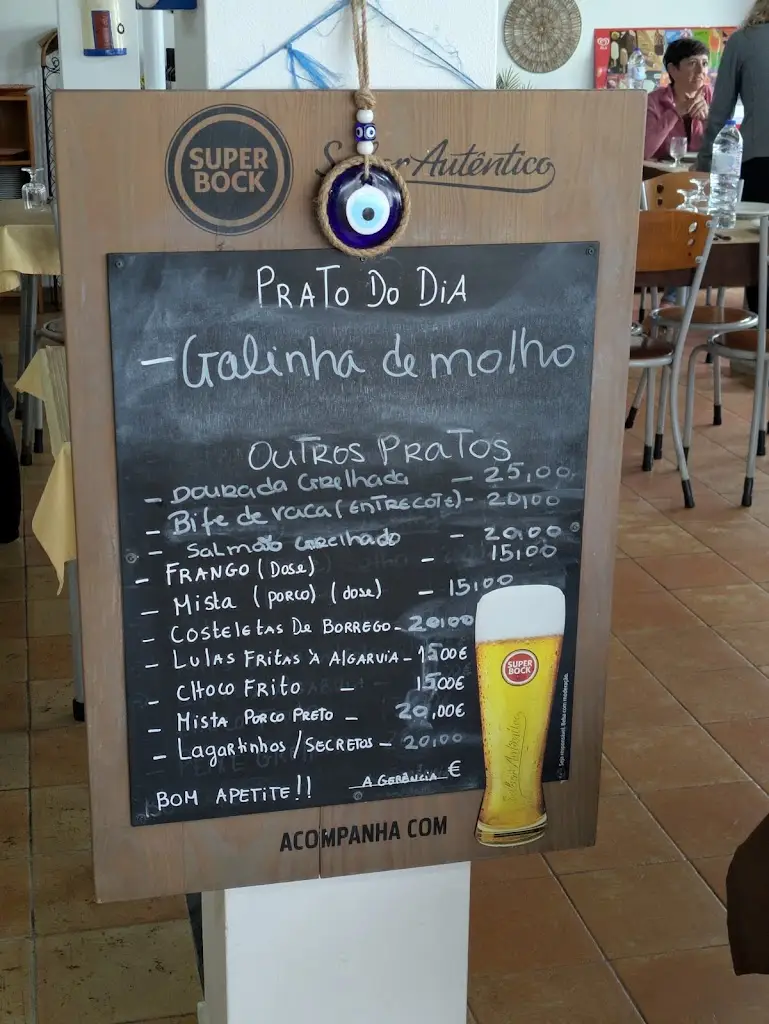 SUPER
BOCK
Sabor Autêntico
PRATO DO DIA
- Galinha de molho
OUTROS PRATOS
- DOURADA GRELHADA - 25,00
- Bife de vaca (ENTRECOTE) - 20,00
- SALMÃO GRELHADO - 20,00
- FRANGO (DOSE) - 15,00
- Mista (PORCO) (dose) - 15,00
- COSTELETAS DE BORREGO - 20,00
- LULAS FRITAS À ALGARVIA - 15,00€
- CHOCO FRITO - 15,00€
- MISTA PORCO PRETO - 20,00€
- Lagartinhos / SECRETOS - 20,00
BOM APETITE!! A GERÊNCIA €
SUPER
BOCK
Sabor Autêntico
Seja responsável. Beba com moderação.
ACOMPANHA COM